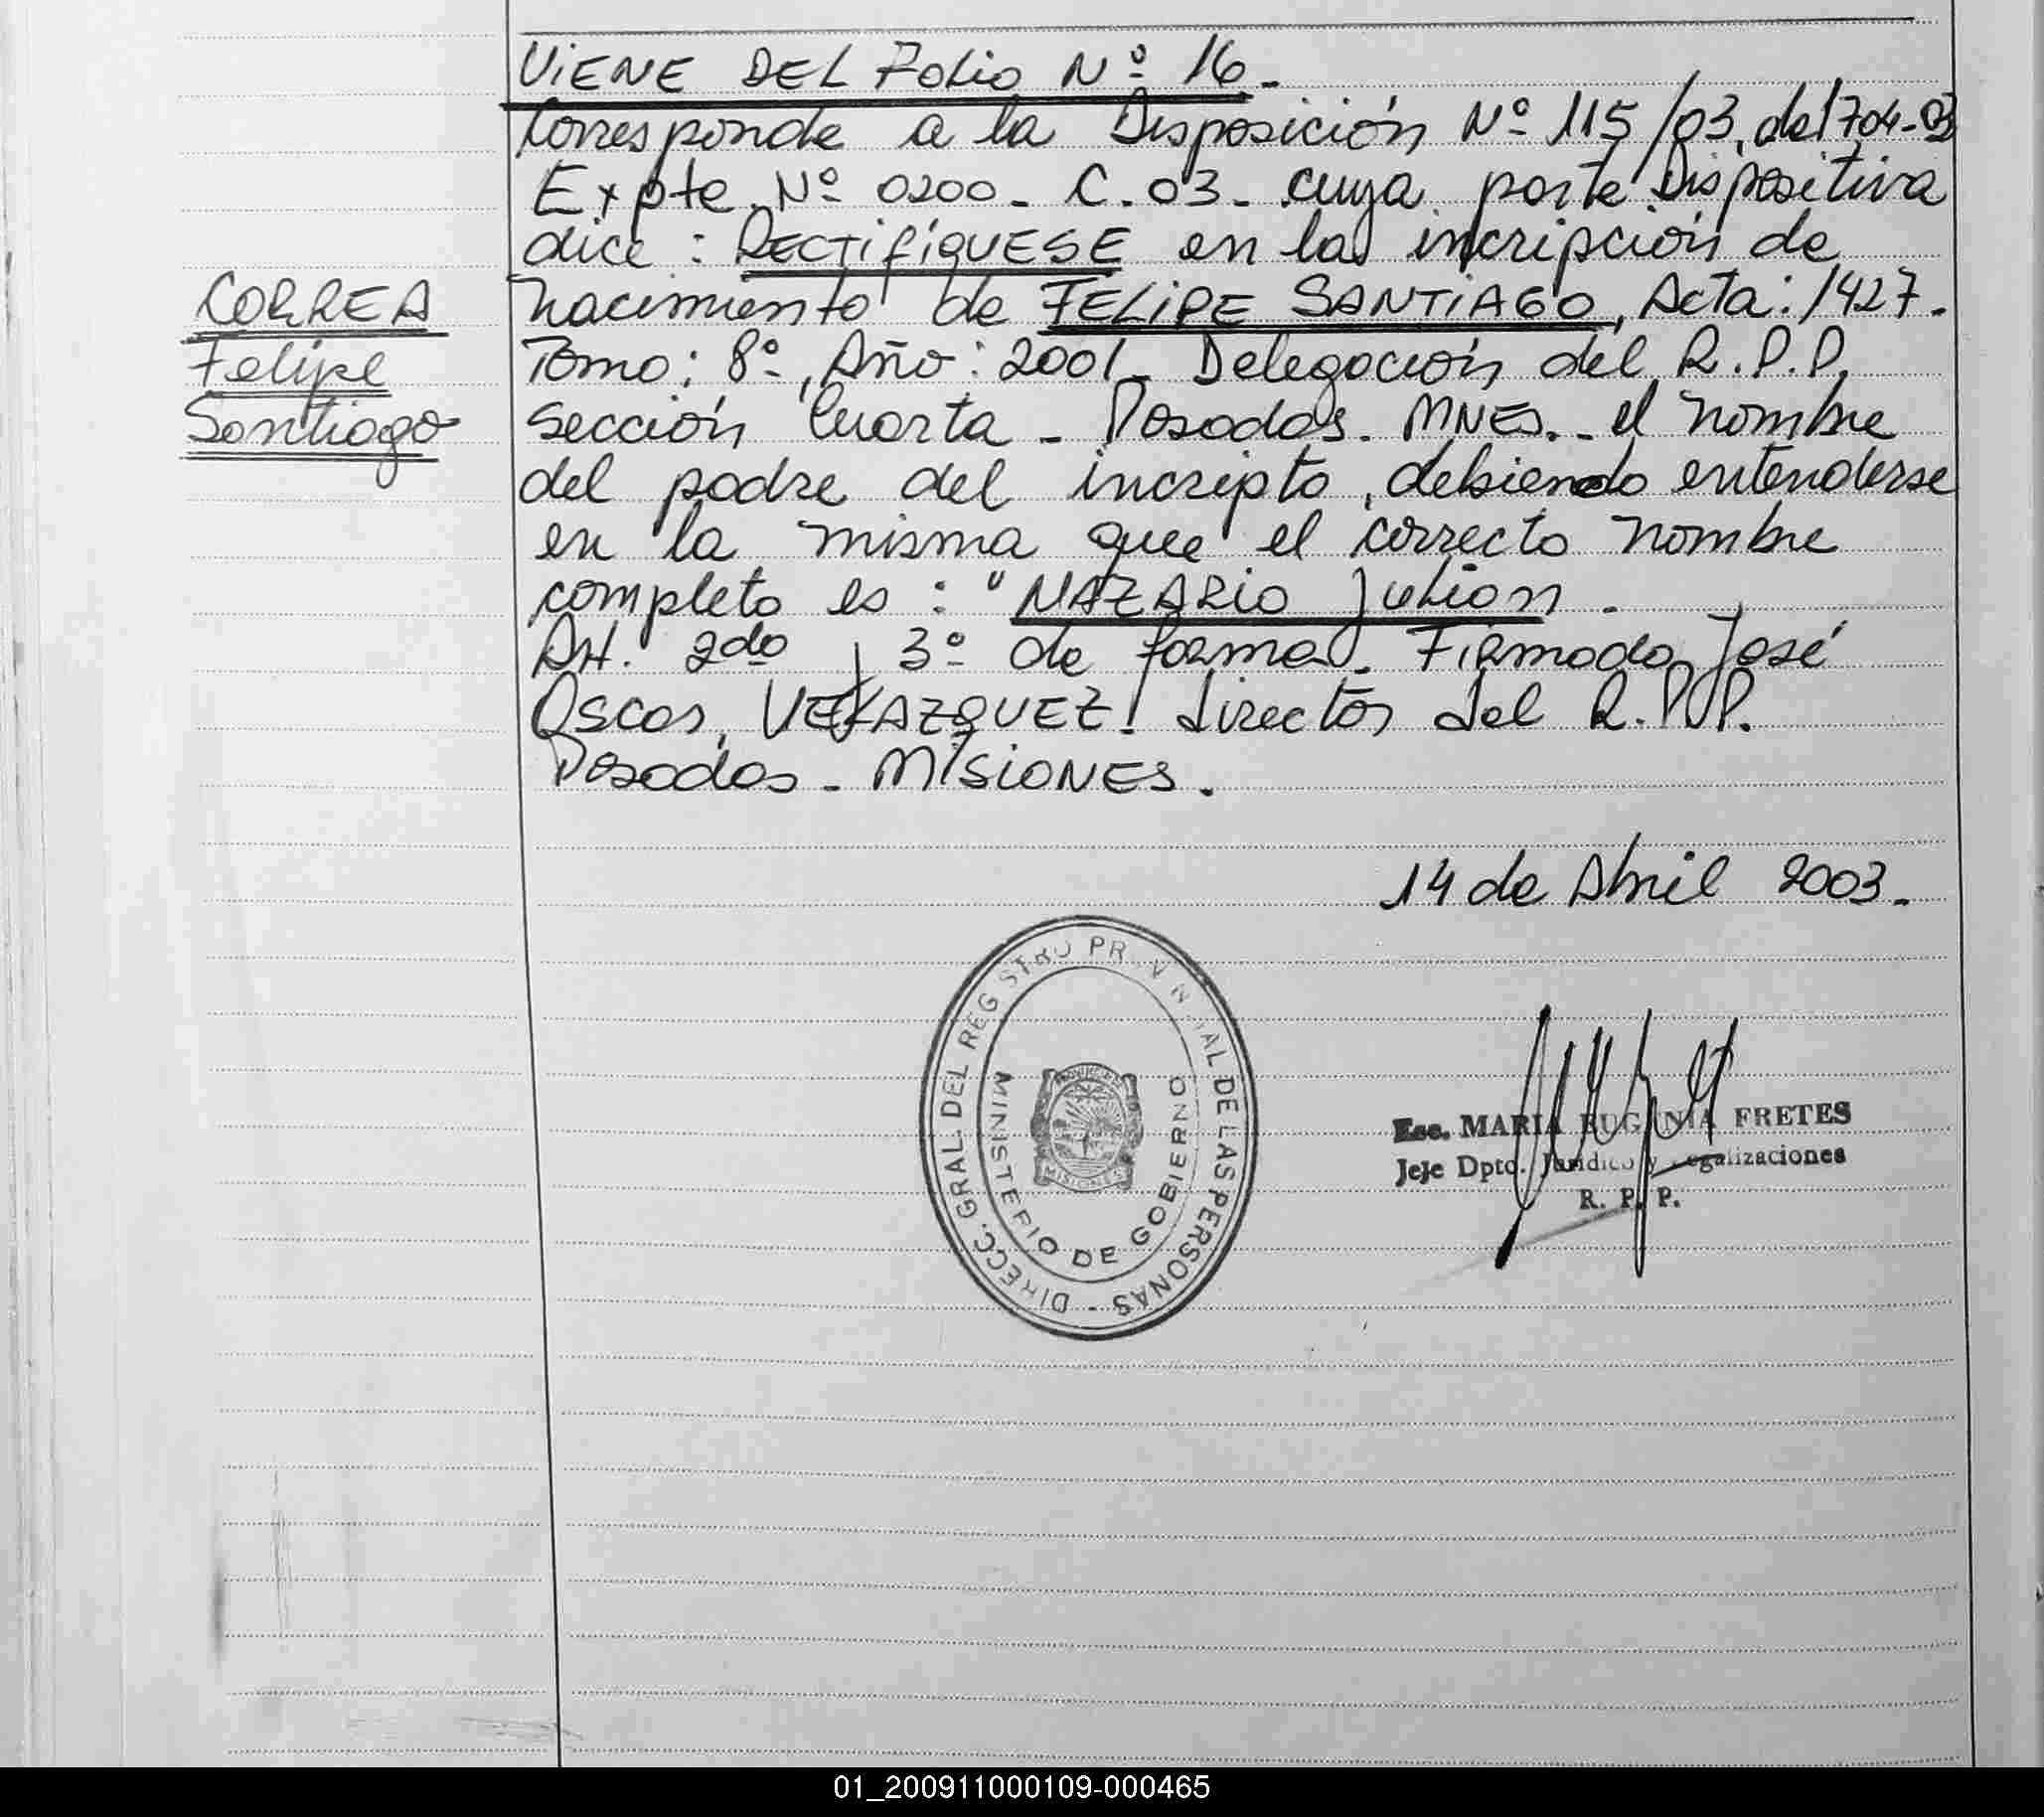 VIENE DEL FOLIO Nº 16.-
Corresponde a la Disposición Nº 115/03, del 7-04-03
Expte. Nº 0200 - C. 03 - cuya parte Dispositiva
dice : RECTIFÍQUESE en la incripción de
CORREA
Felipe
Santiago
nacimiento de FELIPE SANTIAGO, Acta: 1427.
Tomo: 8º, Año: 2001 - Delegación del R.P.P.
sección Cuarta - Posadas. MNES. - el nombre
del padre del incripto, debiendo entenderse
en la misma que el correcto nombre
completo es : "NAZARIO Julián .
Art. 2do y 3º de forma. Firmado José
Oscar, VELAZQUEZ. Director del R.P.P.
Posadas - MISIONES.
14 de Abril 2003.-
DIRECC. GRAL. DEL REGISTRO PROVINCIAL DE LAS PERSONAS -
MINISTERIO DE GOBIERNO
MISIONES
Esc. MARIA EUGENIA FRETES
Jefe Dpto. Jurídico y Legalizaciones
R. P. P.
01_200911000109-000465